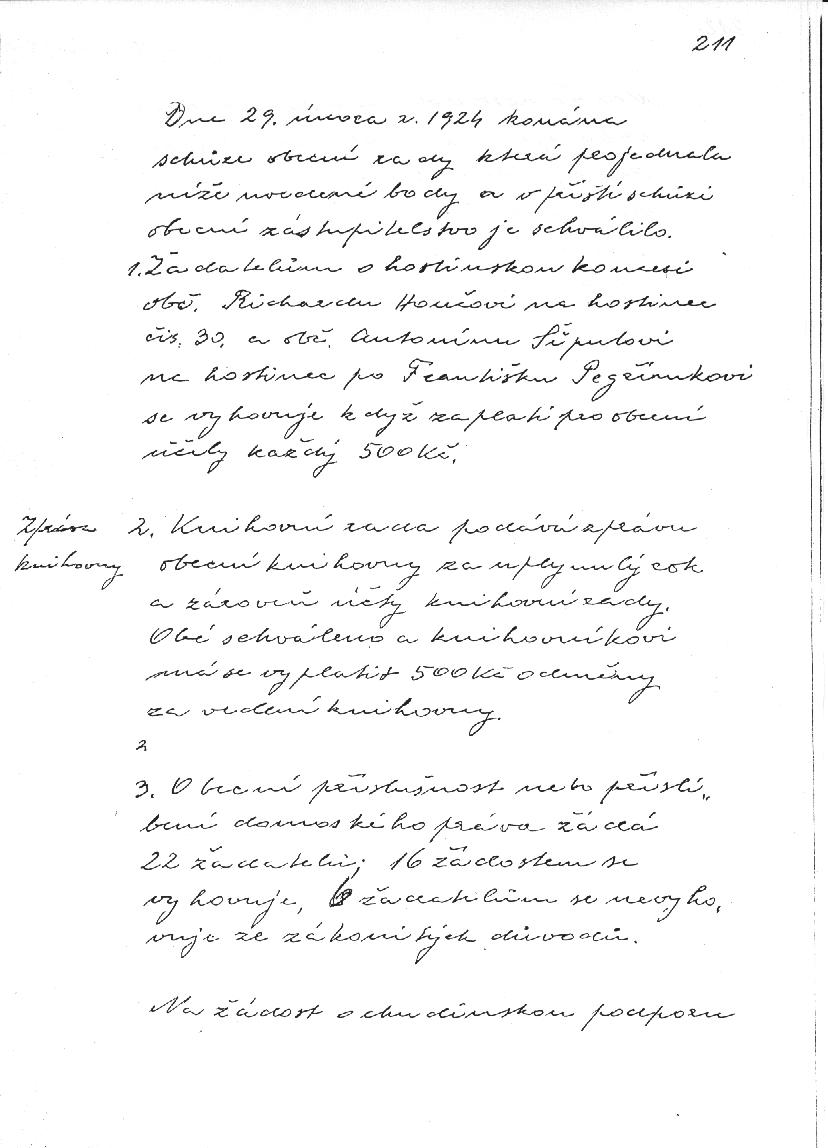 211
Dne 29. února r. 1924 konána
schůze obecní rady která projednala
níže uvedené body a v příští schůzi
obecní zástupitelstvo je schválilo.
1. Žadatelům o hostinskou koncesi
obč. Richardu Houčovi na hostinec
čís. 30. a obč. Antonínu Šípulovi
na hostinec po Františku Pegřímkovi
se vyhovuje když zaplatí pro obecní
účely každý 500 Kč.
Zpráva
knihovny
2. Knihovní rada podává zprávu
obecní knihovny za uplynulý rok
a zároveň účty knihovní rady.
Obé schváleno a knihovníkovi
má se vyplatit 500 Kč odměny
za vedení knihovny.
2
3. O obecní příslušnost nebo příslí„
bení domovského práva žádá
22 žadatelů; 16 žádostem se
vyhovuje, 6 žadatelům se nevyho„
vuje ze zákonitých důvodů.
Na žádost o chudinskou podporu